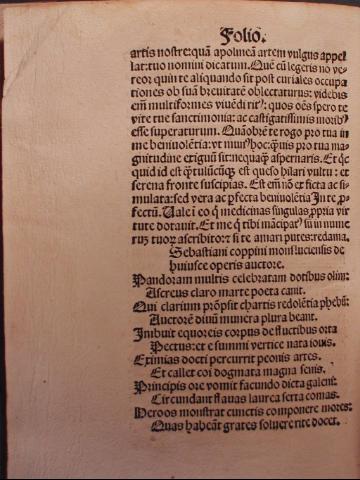 Folio.
artis nostre: quã apolineã artem vulgus appel
lat: tuo nomini dicatum. Quẽ cũ legeris no ve-
reor quin te aliquando sit post curiales occupa
tiones ob suã brevitatẽ oblectaturus: videbis
eñi multiformes viuẽdi rit⁹: quos oẽs spero te
vite tue sanctimonia: ac castigatissimis morib⁹
esse superaturum. Quãobrẽ te rogo pro tua in
me beniuolẽtia: vt mun⁹ hoc: quis pro tua ma-
gnitudine exiguũ sit: nequaq̃ aspernaris. Et
quid id est queso hilari vultu: et
serena fronte suscipias. Est eñi nõ ex ficta ac si-
mulata: sed vera ac ꝑfecta beniuolẽtia In te ꝓ-
fectũ. Uale
tute dotauit. Et me
ascribito: si te amari putes: redama.
Sebastiani coppini monsluciensis de
huiusce operis auctore.
Pandoram multis celebratam dotibus olim:
Ascreus claro marte poeta canit.
Qui clarium prõpsit chartis redolẽtia phebũ:
Auctorẽ diuũ munera plura beant.
Inibuit equoreis corpus de fluctibus orta
Pectus: et e summi vertice nata iouis.
Eximias docti percurrit peonis artes.
Et callet coi dogmata magna senis.
Principis ore vomit facundo dicta galeni:
Circundant flauas laurea serta comas.
Heroos monstrat cunctis componere mores:
Quas habeãt grates soluere rite docet.